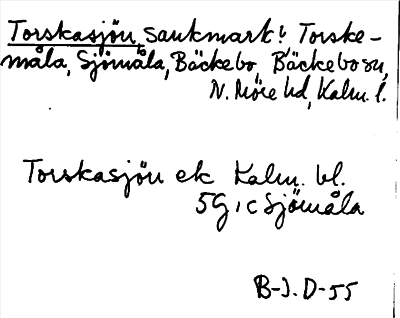 Torskasjön, sankmark, Torske-
måla, Sjömåla, Bäckebo, Bäckebo sn,
N. Möre hd, Kalm. l.
Torskasjön ek Kalm. bl.
5G, c Sjömåla
B-J. D-55